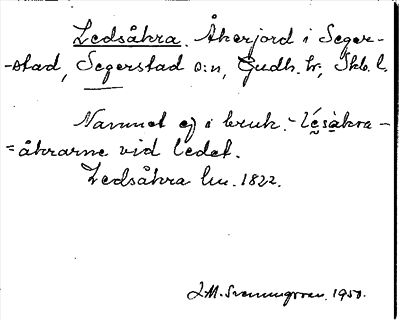 Ledsåkra. Åkerjord i Seger-
-stad, Segerstad s:n, Gudh. hr, Skb. l.
Namnet ej i bruk. - lésåkra -
= åkrarne vid ledet.
Ledsåkra lm. 1822.
J.M. Svenningsson. 1950.